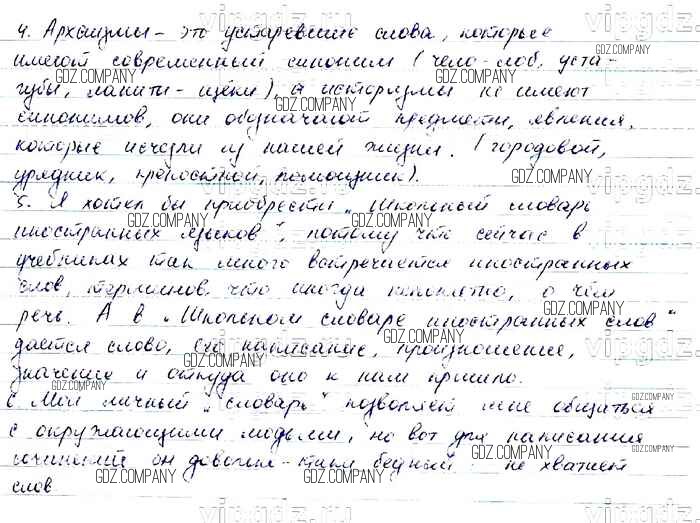 4. Архаизмы - это устаревшие слова, которые
имеют современный синоним (чело - лоб, уста -
губы, ланиты - щёки), а историзмы не имеют
синонимов, они обозначают предметы, явления,
которые исчезли из нашей жизни. (городовой,
урядник, крепостной, помощник).
5. Я хотел бы приобрести „Школьный словарь
иностранных языков", потому что сейчас в
учебниках так много встречается иностранных
слов, терминов, что иногда непонятно, о чём
речь. А в „Школьном словаре иностранных слов"
даётся слово, его написание, произношение,
значение и откуда оно к нам пришло.
6 Мой личный „словарь" позволяет мне общаться
с окружающими людьми, но вот для написания
сочинений он довольно-таки бедный: не хватает
слов